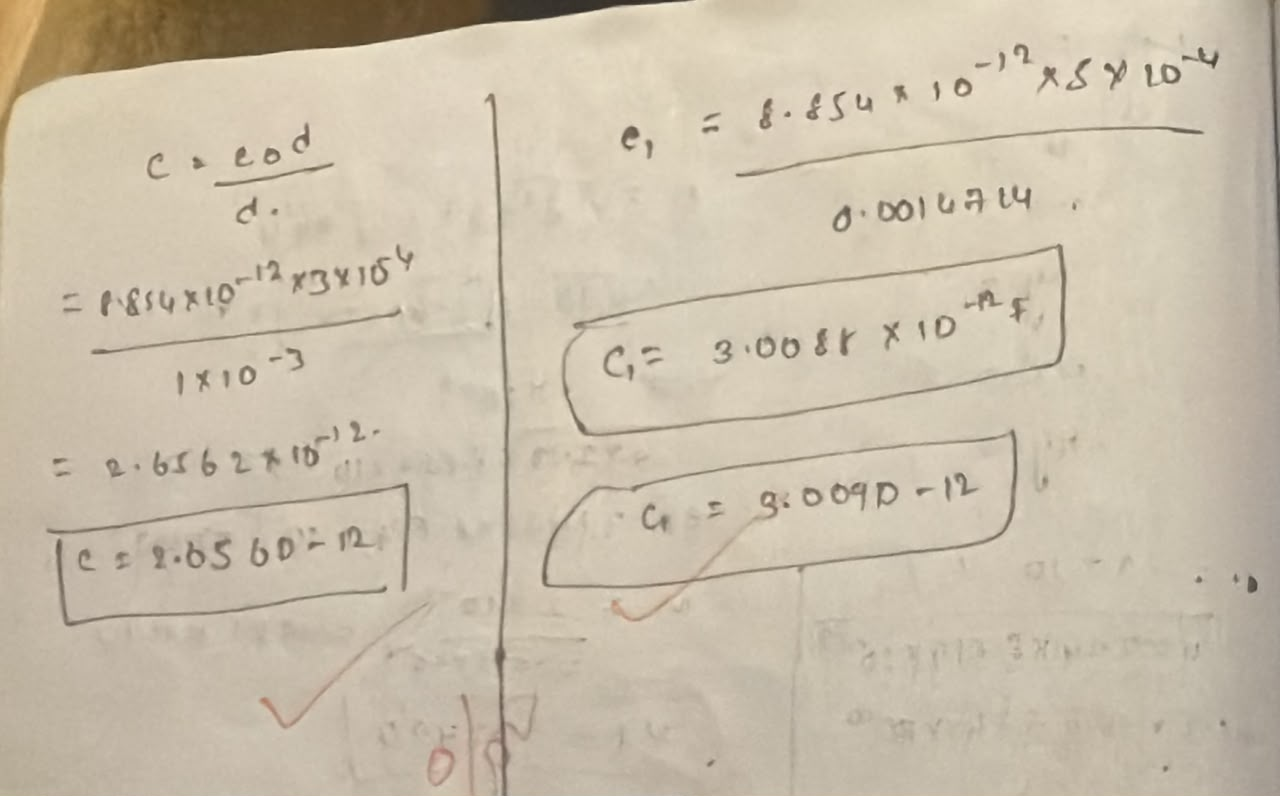 C = ε0d
d.
= 8.854×10⁻¹²×3×10⁴
1×10⁻³
= 2.6562×10⁻¹².
C = 2.6560-12
C₁ = 8.854×10⁻¹²×5×10⁻⁴
C₁ = 3.0088×10⁻¹² F.
C₁ = 3.009D-12